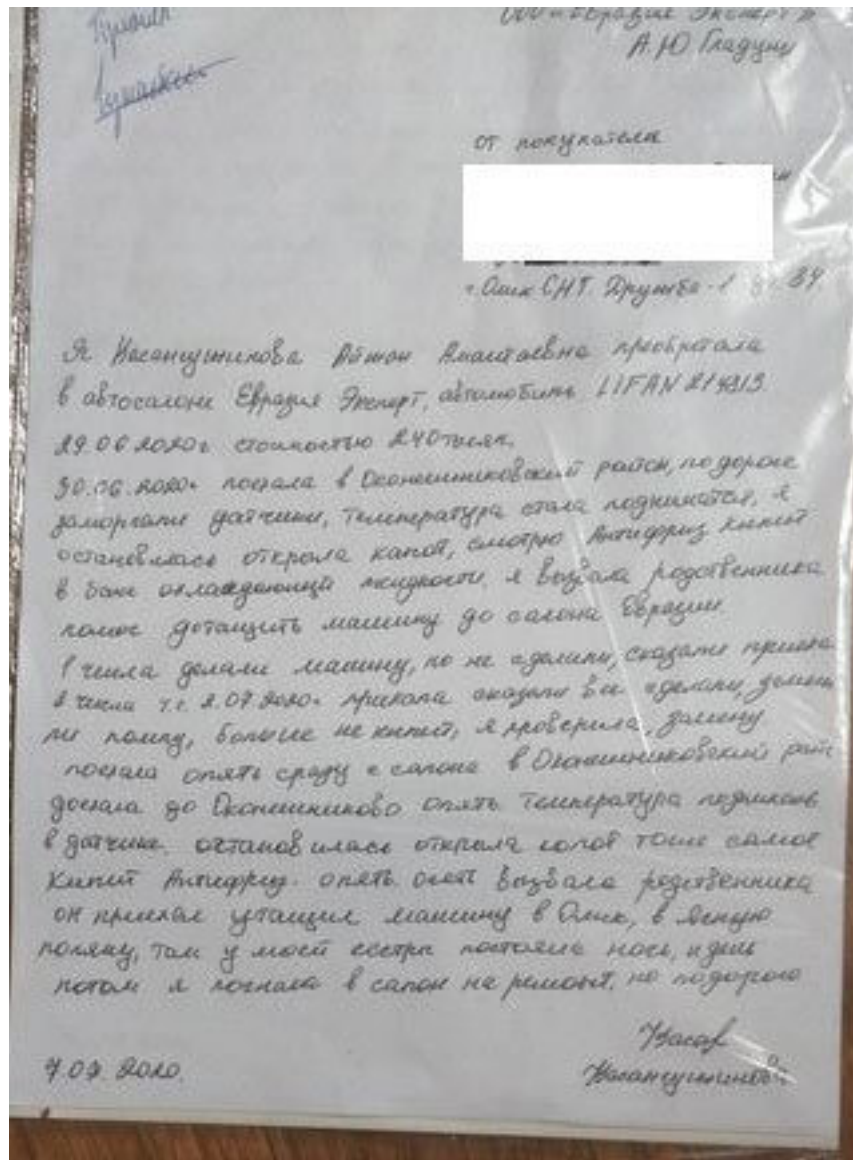 ООО «Евразия Эксперт»
А.Ю Гладуну
от покупателя
г.Омск СНТ. Дружба-1 34
Я Айман преобретала
в автосалоне Евразия Эксперт, автомобиль LIFAN 214813.
29.06 2020г стоимостью 240тысяч.
30.06.2020г поехала в Оконешниковский район, по дороге
заморгали датчики, температура стала поднимаtся, я
остановилась открыла капот, смотрю Антифриз кипит
в баке охлаждающей жидкости. я вызвала родственника
помог дотащить машину до салона Евразии
1 числа делали машину, но не сделали, сказали
2 числа т.е. 2.07.2020г сказали все сделали,
ли помпу, больше не кипит, я проверила,
поехала опять сразу с салона в Оконешниковский
доехала до Оконешниково опять температура
в датчике. остановилась открыла капот тоже самое
кипит Антифриз. опять вызвала родственника
он приехал утащил машину в Омск, в Ясную
поляну, там у моей сестры постояла ночь, и день
потом я погнала в салон на ремонт, но по дороге
7.07.2020.